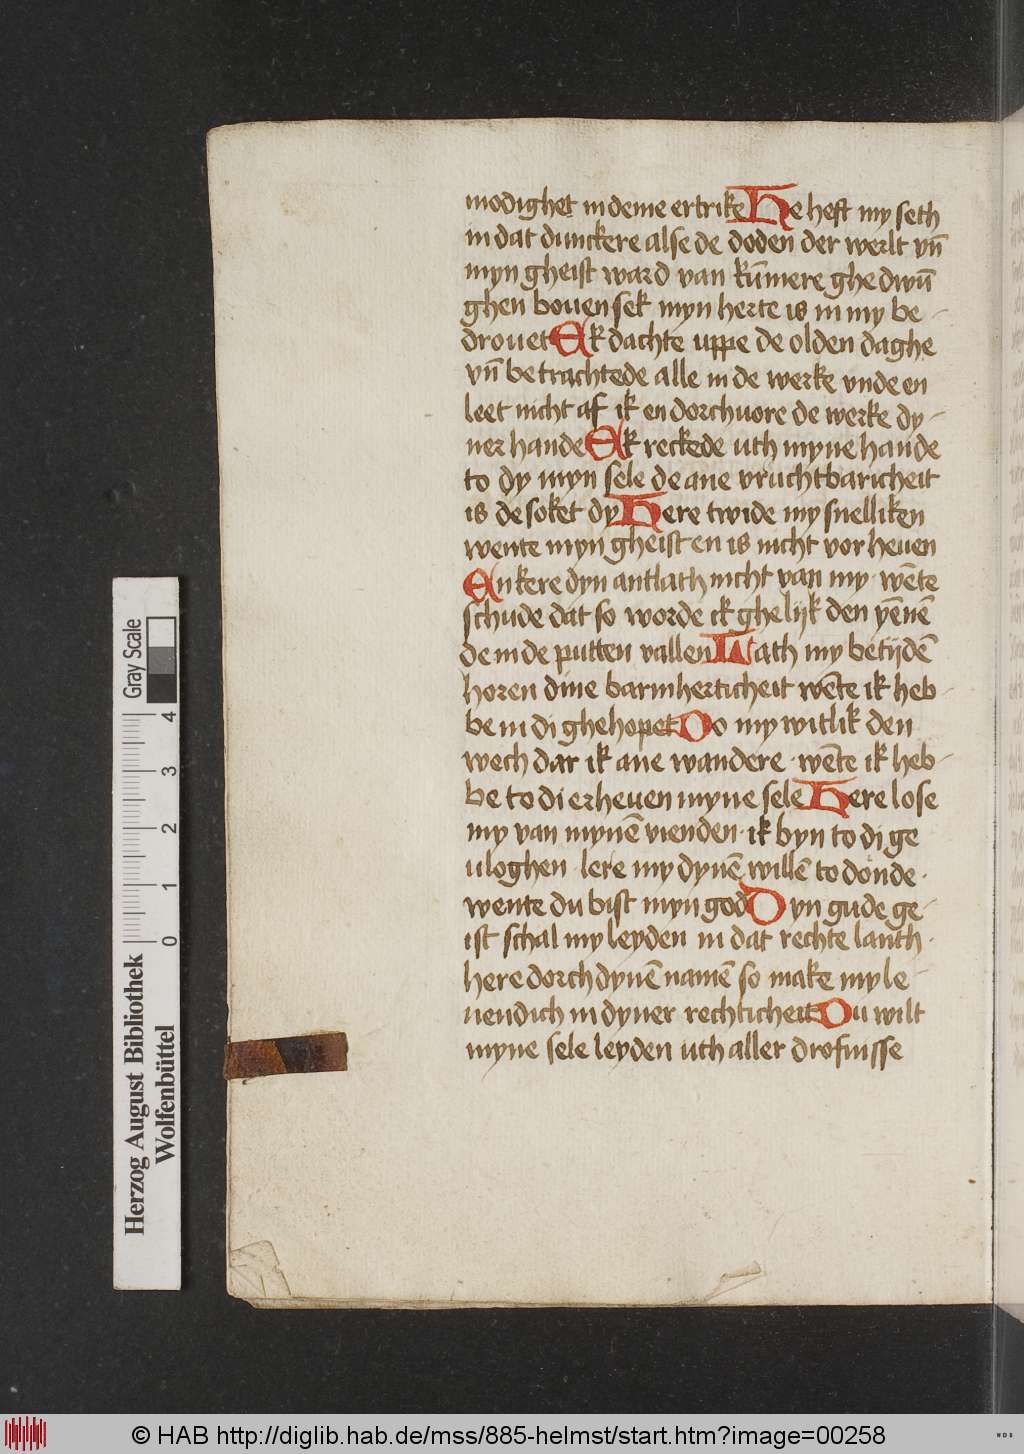 modighet in deme ertrike He heft my seth
in dat dunckere alse de doden der werlt vn̄
myn gheist ward van kūmere ghe dwū
ghen bouen sek myn herte is in my be-
drouet Ek dachte uppe de olden daghe
vn̄ be trachtede alle in de werke vnde en
leet nicht af ik en dorchuore de werke dy-
ner hande Ek reckede uth myne hande
to dy myn sele de ane vruchtbaricheit
is de soket dy Here twide my snelliken
wente myn gheist en is nicht vor heuen
En kere dyn antlath nicht van my · wēte
schude dat so worde ick ghelijk den yēnē
de in de putten vallen Lath my betijdē
horen dine barmherticheit wēte ik heb-
be in di ghehopet Do my witlik den
wech dar ik ane wandere · wēte ik heb-
be to di erheuen myne sele Here lose
my van mynē vienden · ik byn to di ge
uloghen · lere my dynē willē to donde ·
wente du bist myn god Dyn gude ge-
ist schal my leyden in dat rechte lanth ·
here dorch dynē namē so make my le-
uendich in dyner rechticheit Du wilt
myne sele leyden uth aller drofnisse
Gray Scale
4
3
2
1
0
Herzog August Bibliothek
Wolfenbüttel
© HAB http://diglib.hab.de/mss/885-helmst/start.htm?image=00258